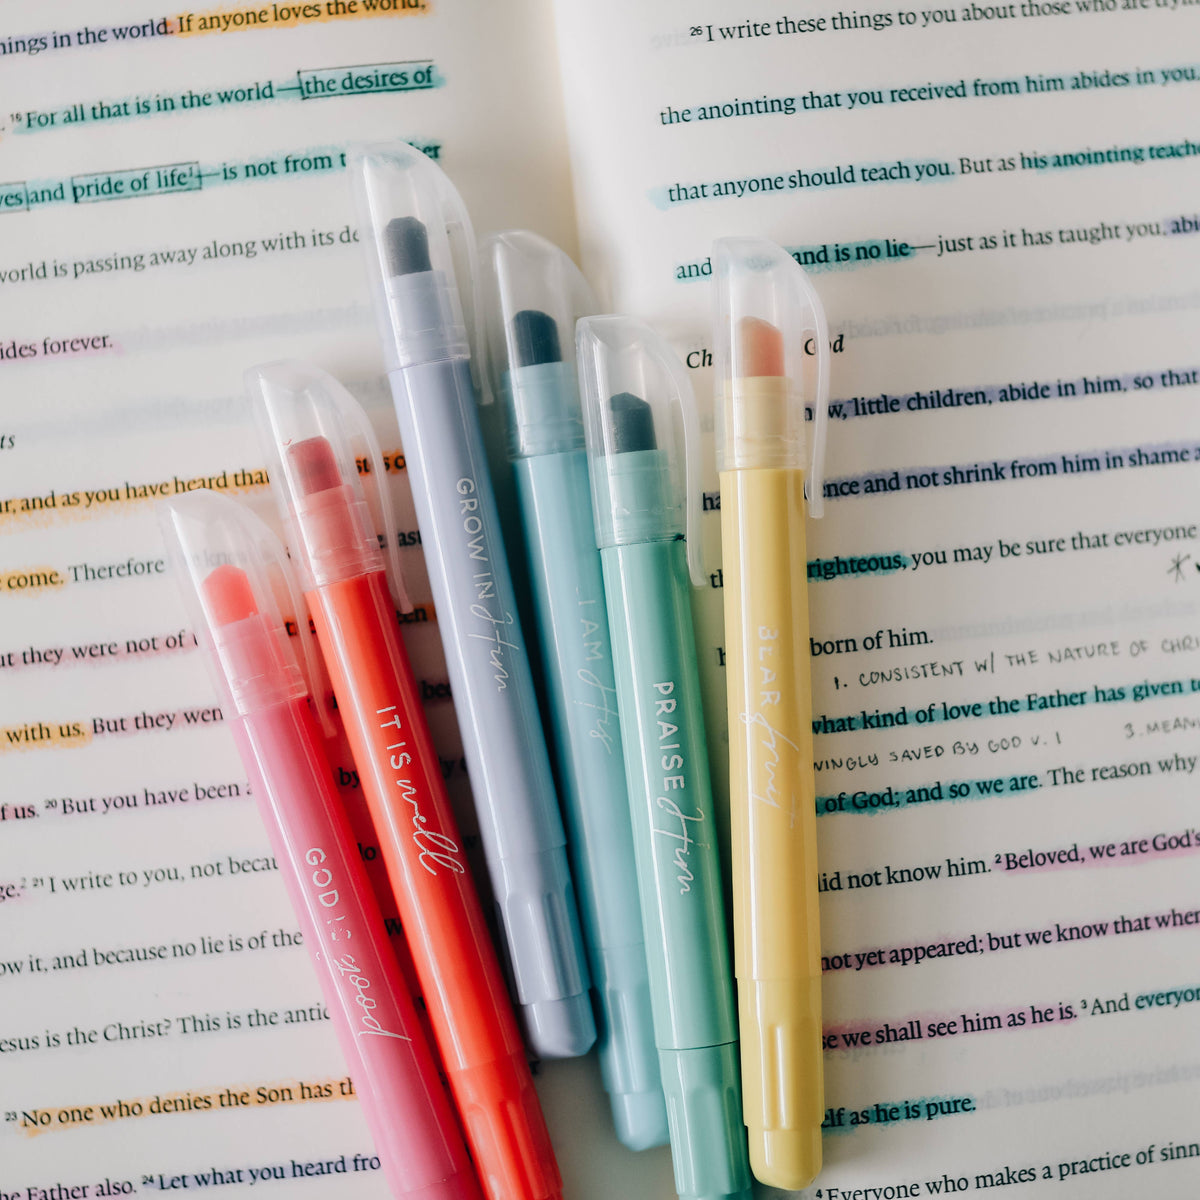 things in the world. If anyone loves the world,
16 For all that is in the world—the desires of
and pride of life—is not from
world is passing away along with its
forever.
and as you have heard that
come. Therefore
they were not of
with us. But they
of us. 20 But you have been
21 I write to you, not
it, and because no lie is of the
Jesus is the Christ? This is the
23 No one who denies the Son has
Father also. 24 Let what you heard
26 I write these things to you about those who are
the anointing that you received from him abides in you,
that anyone should teach you. But as his anointing
and and is no lie—just as it has taught you,
God
little children, abide in him, so that
and not shrink from him in shame
righteous, you may be sure that everyone
born of him.
1. CONSISTENT W/ THE NATURE OF
what kind of love the Father has given
SAVED BY GOD V. 1 3.
of God; and so we are. The reason why
did not know him. 2 Beloved, we are God's
not yet appeared; but we know that
we shall see him as he is. 3 And
as he is pure.
4 Everyone who makes a practice of
GOD IS good
IT IS well
GROW IN Him
I AM His
PRAISE Him
BEAR fruit